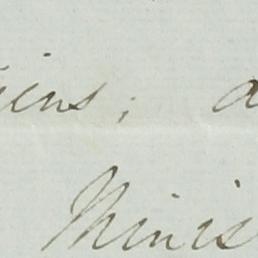 iens; a
Minis